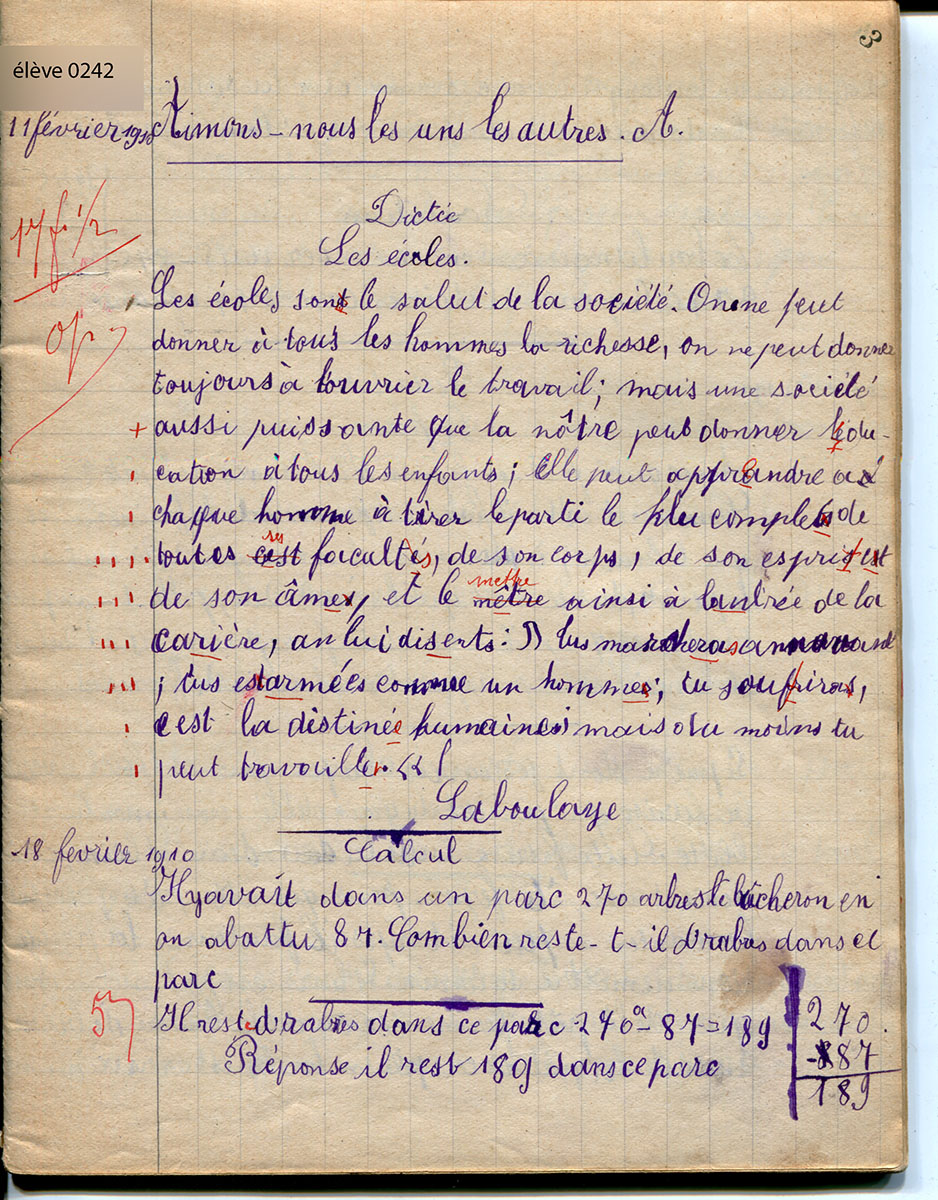 3
élève 0242
11 février 1910 Aimons-nous les uns les autres. A.
Dictée
Les écoles.
17 f. 1/2
Les écoles sont le salut de la société. On ne peut
donner à tous les hommes la richesse, on ne peut donner
toujours à louvrier le travail; mais une société
aussi puissante que la nôtre peut donner lédu-
cation à tous les enfants; Elle peut apprandre à
chaque homme à tirer le parti le plu complet de
toutes cest ses facultés, de son corps, de son esprit est
de son âmes, et le mêtre mettre ainsi à lantrée de la
carière, an lui diserts: )) tus marcheras an avant
; tus est armées comme un hommes; tu soufriras,
cest la déstinée humaine; mais olu moins tu
peut travailler. « !
Laboulaye
18 février 1910
Calcul
Il y avait dans un parc 270 arbres le bûcheron en
an abattu 87. Combien reste-t-il drabes dans ce
parc
5
Il reste drabres dans ce parc 270a - 87 = 189
Réponse il rest 189 dans ce parc
270.
-87
189